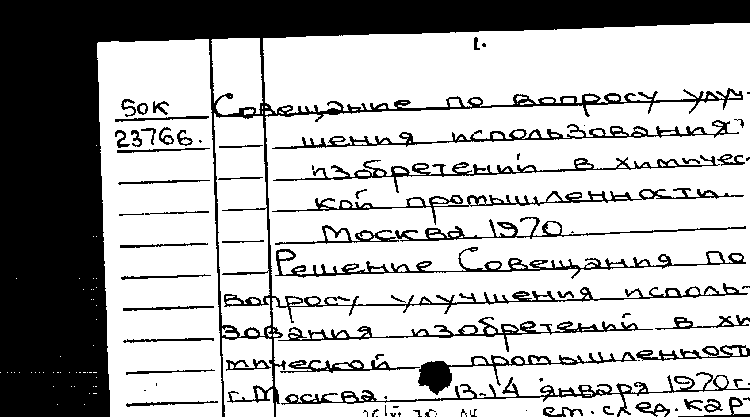 1.
50к Совещание по вопросу улуч-
23766. шения использования
изобретений в химичес
кой промышленности.
Москва. 1970.
Решение Совещания по
вопросу улучшения исполь-
зования изобретений в хи
мической промышленност
г. Москва. 13-14 января 1970 г.
см. след. кар